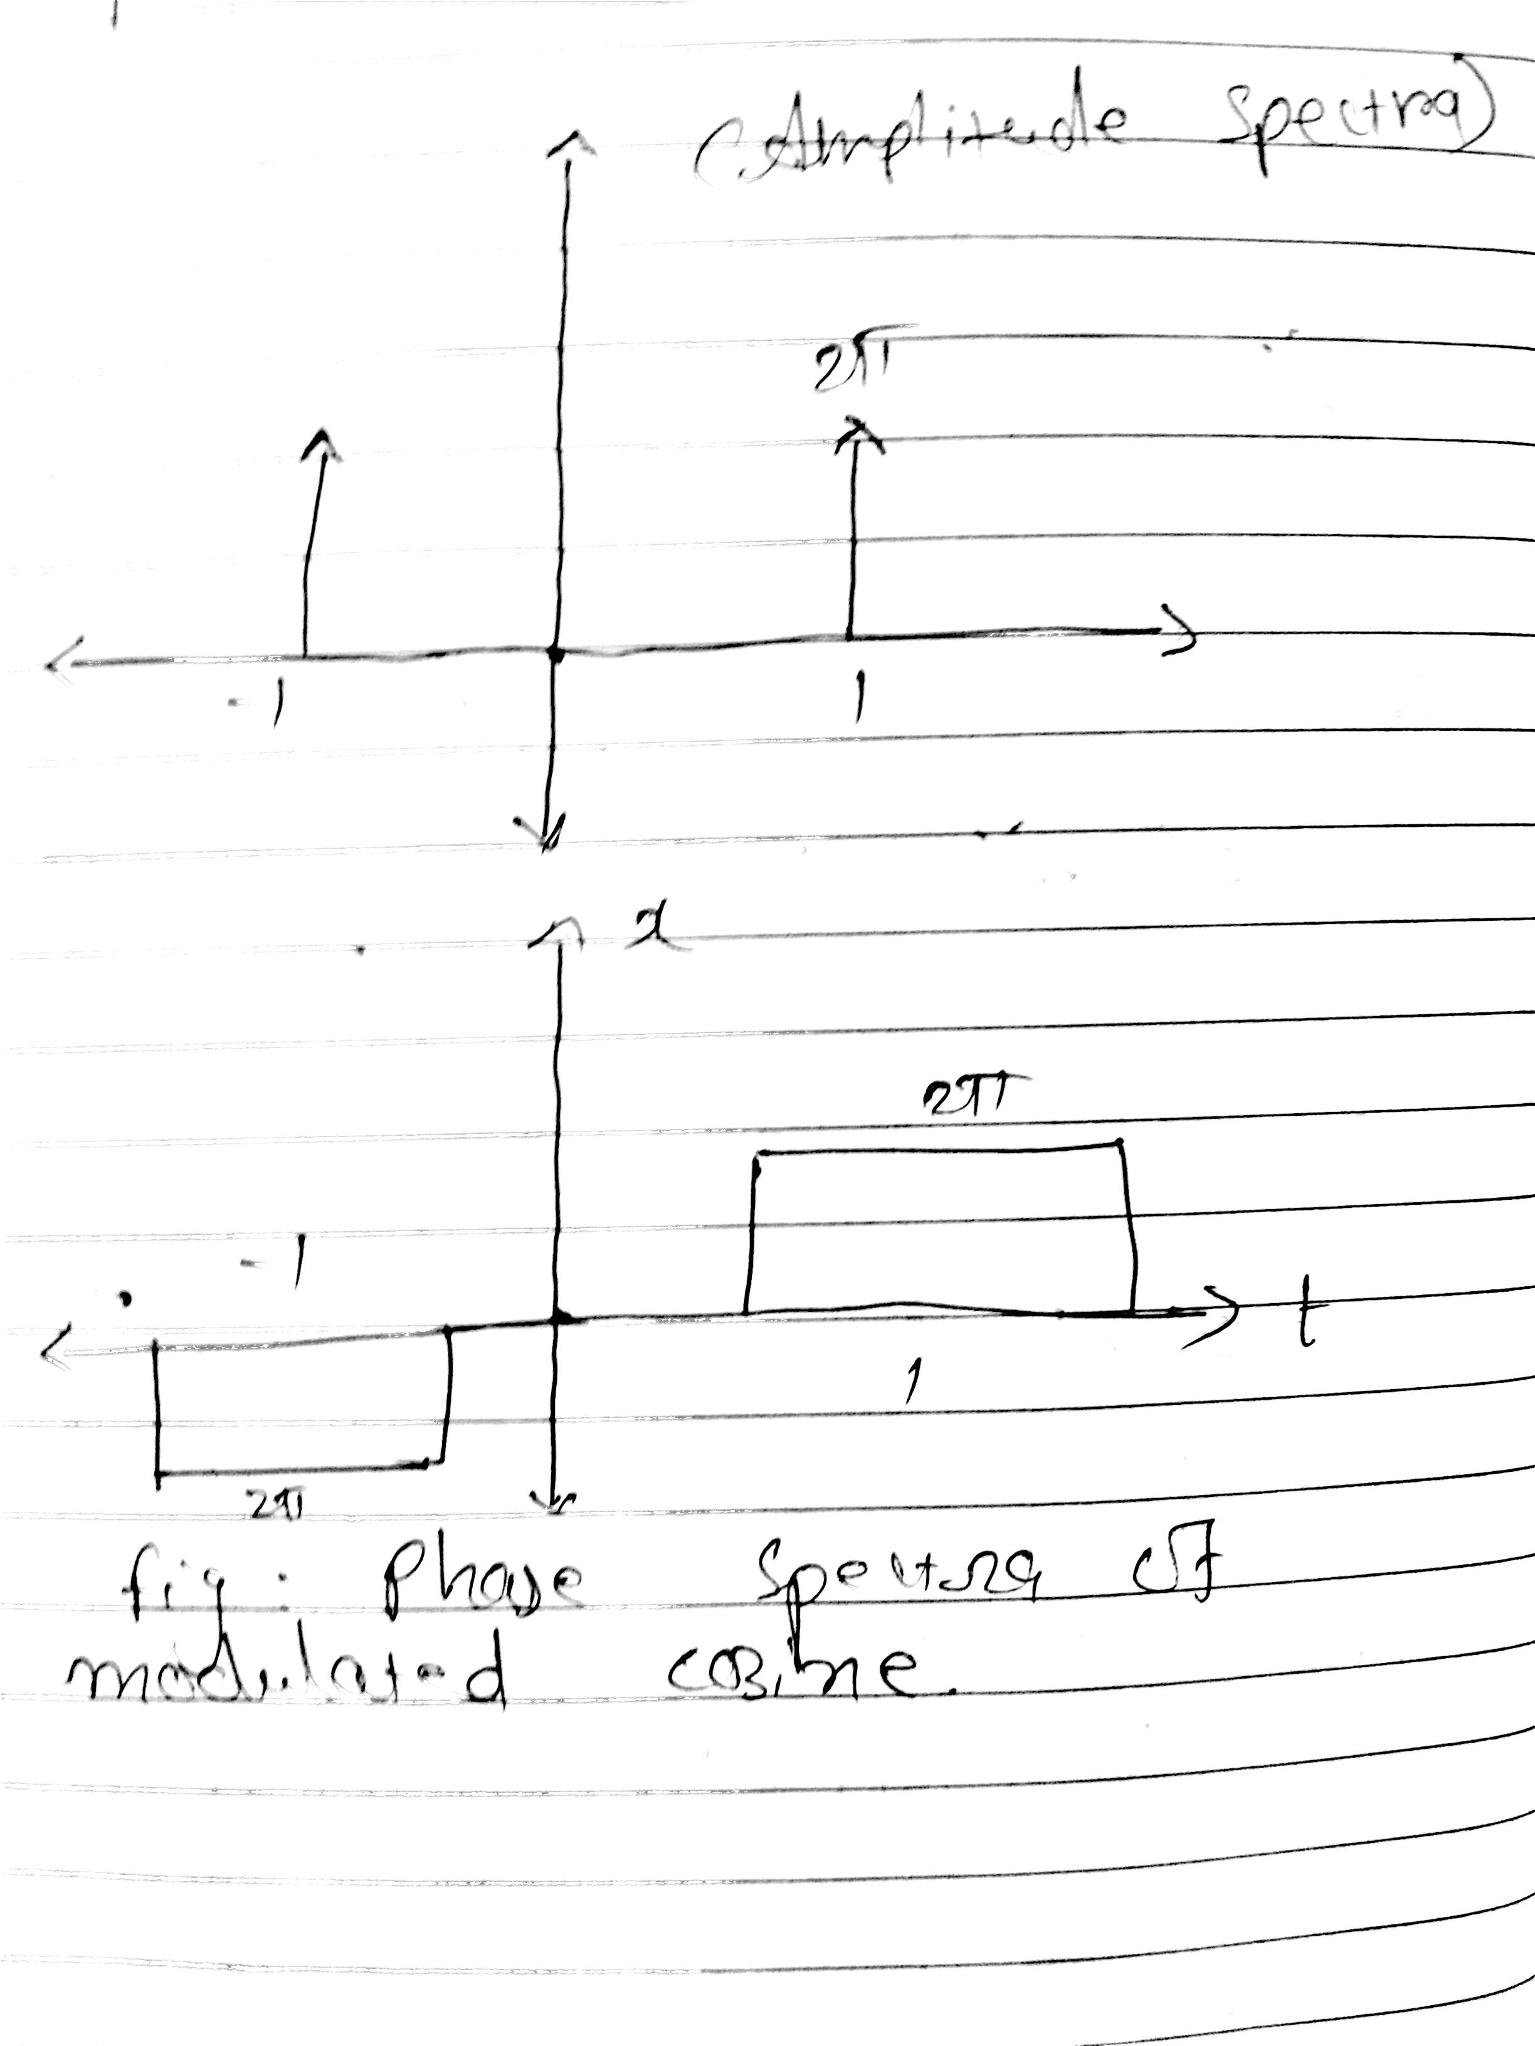 (Amplitude Spectra)
2π
-1
1
x
2π
-1
t
1
2π
fig: Phase Spectra of
modulated cosine.